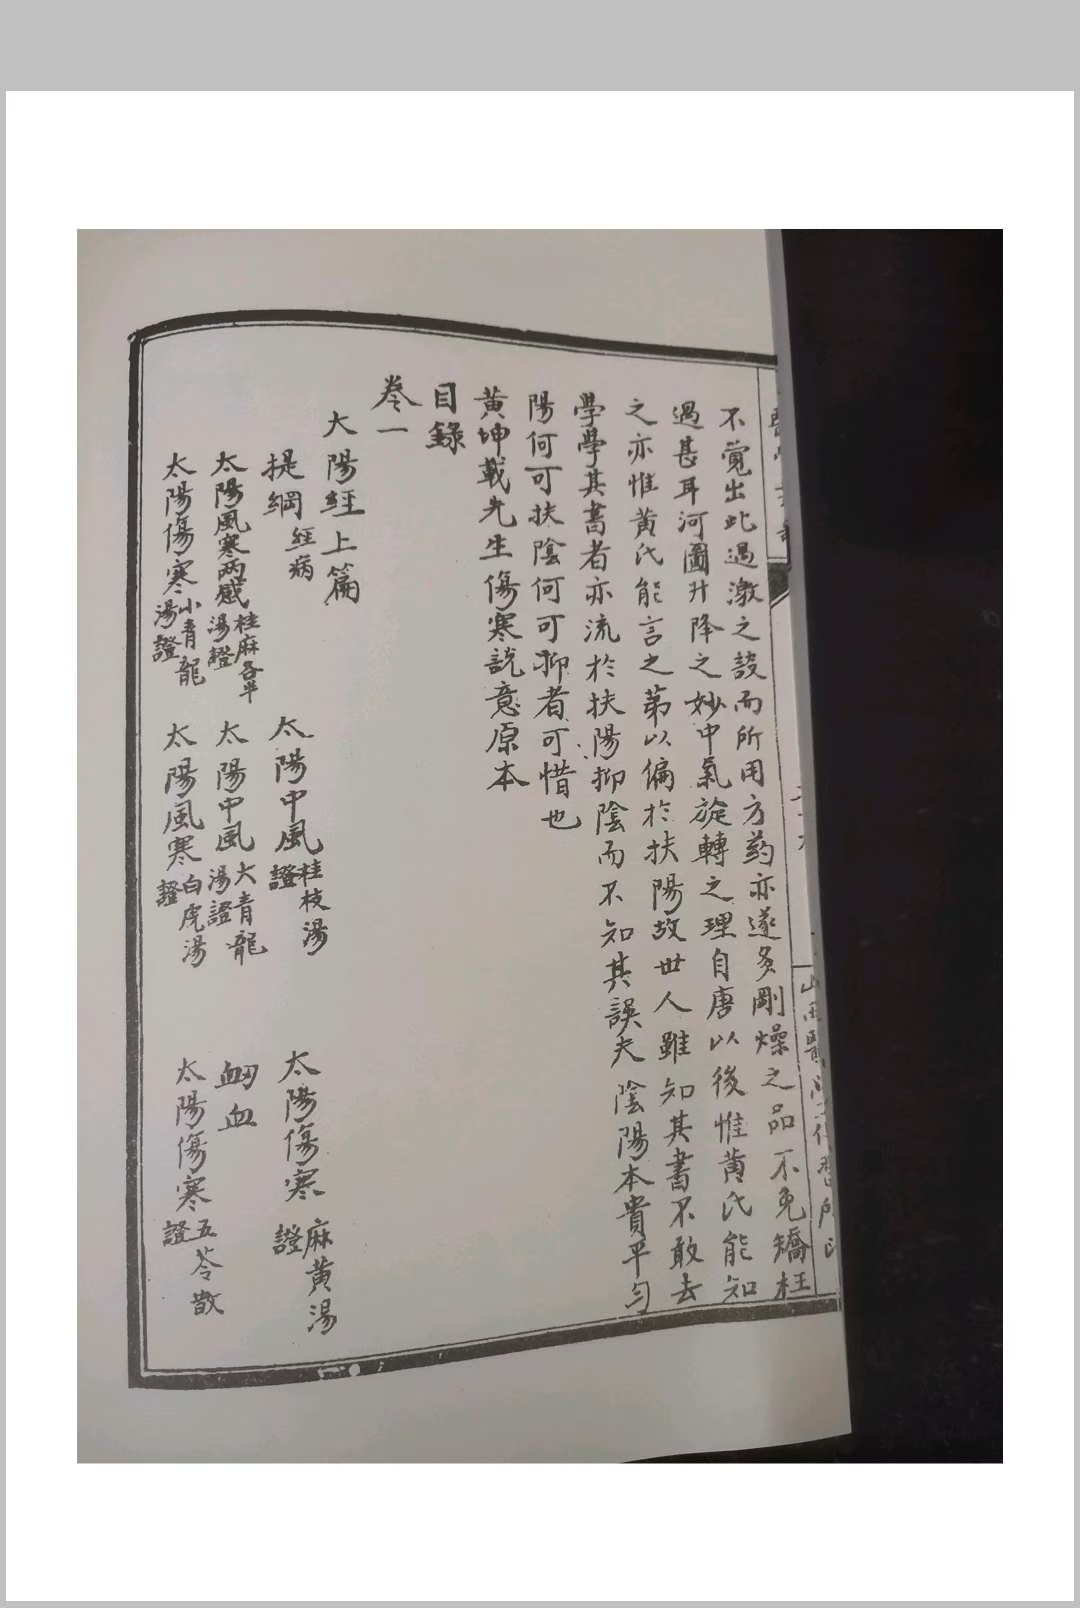 不覺出此過激之說而所用方药亦遂多剛燥之品不免矯枉
過甚耳河圖升降之妙中氣旋轉之理自唐以後惟黄氏能知
之亦惟黄氏能言之第以偏於扶陽故世人雖知其書不敢去
學學其書者亦流於扶陽抑陰而不知其誤夫陰陽本貴平勻
陽何可扶陰何可抑者可惜也
黄坤載先生傷寒說意原本
目錄
卷一
太陽經上篇
提綱 經病 太陽中風 桂枝湯證 太陽傷寒 麻黄湯證
太陽風寒两感 桂麻各半湯證 太陽中風 大青龍湯證 衂血
太陽傷寒 小青龍湯證 太陽風寒 白虎湯證 太陽傷寒 五苓散證